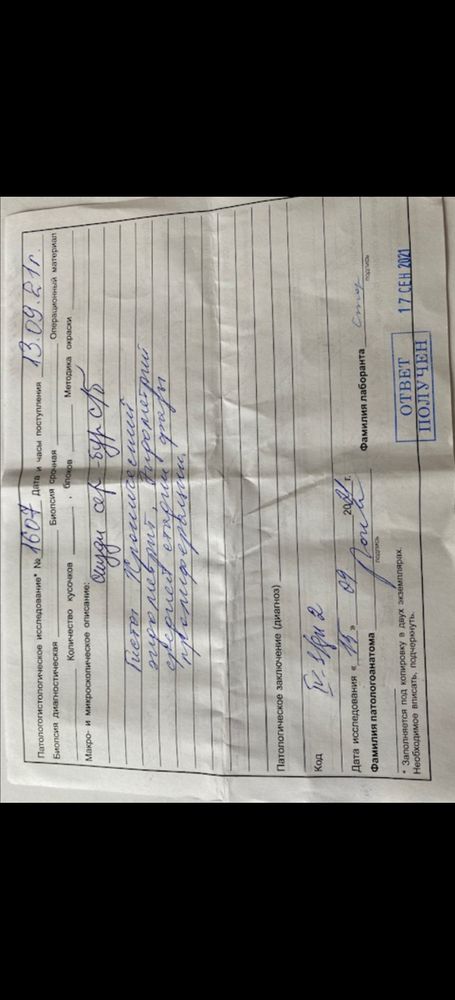 Патологогистологическое исследование* № 1607 Дата и часы поступления 13.09.21г.
Биопсия диагностическая Биопсия срочная Операционный материал
Количество кусочков , блоков Методика окраски
Макро- и микроскопическое описание:
сер - бур с/б
Гисто: Хронический
эндометрит, Эндометрий
средней стадии фазы
пролиферации.
Патологическое заключение (диагноз)
Код IV
Дата исследования « 15 » 09 2021 г.
Фамилия патологоанатома Фамилия лаборанта
подпись подпись
* Заполняется под копировку в двух экземплярах.
Необходимое вписать, подчеркнуть.
ОТВЕТ
ПОЛУЧЕН
17 СЕН 2021